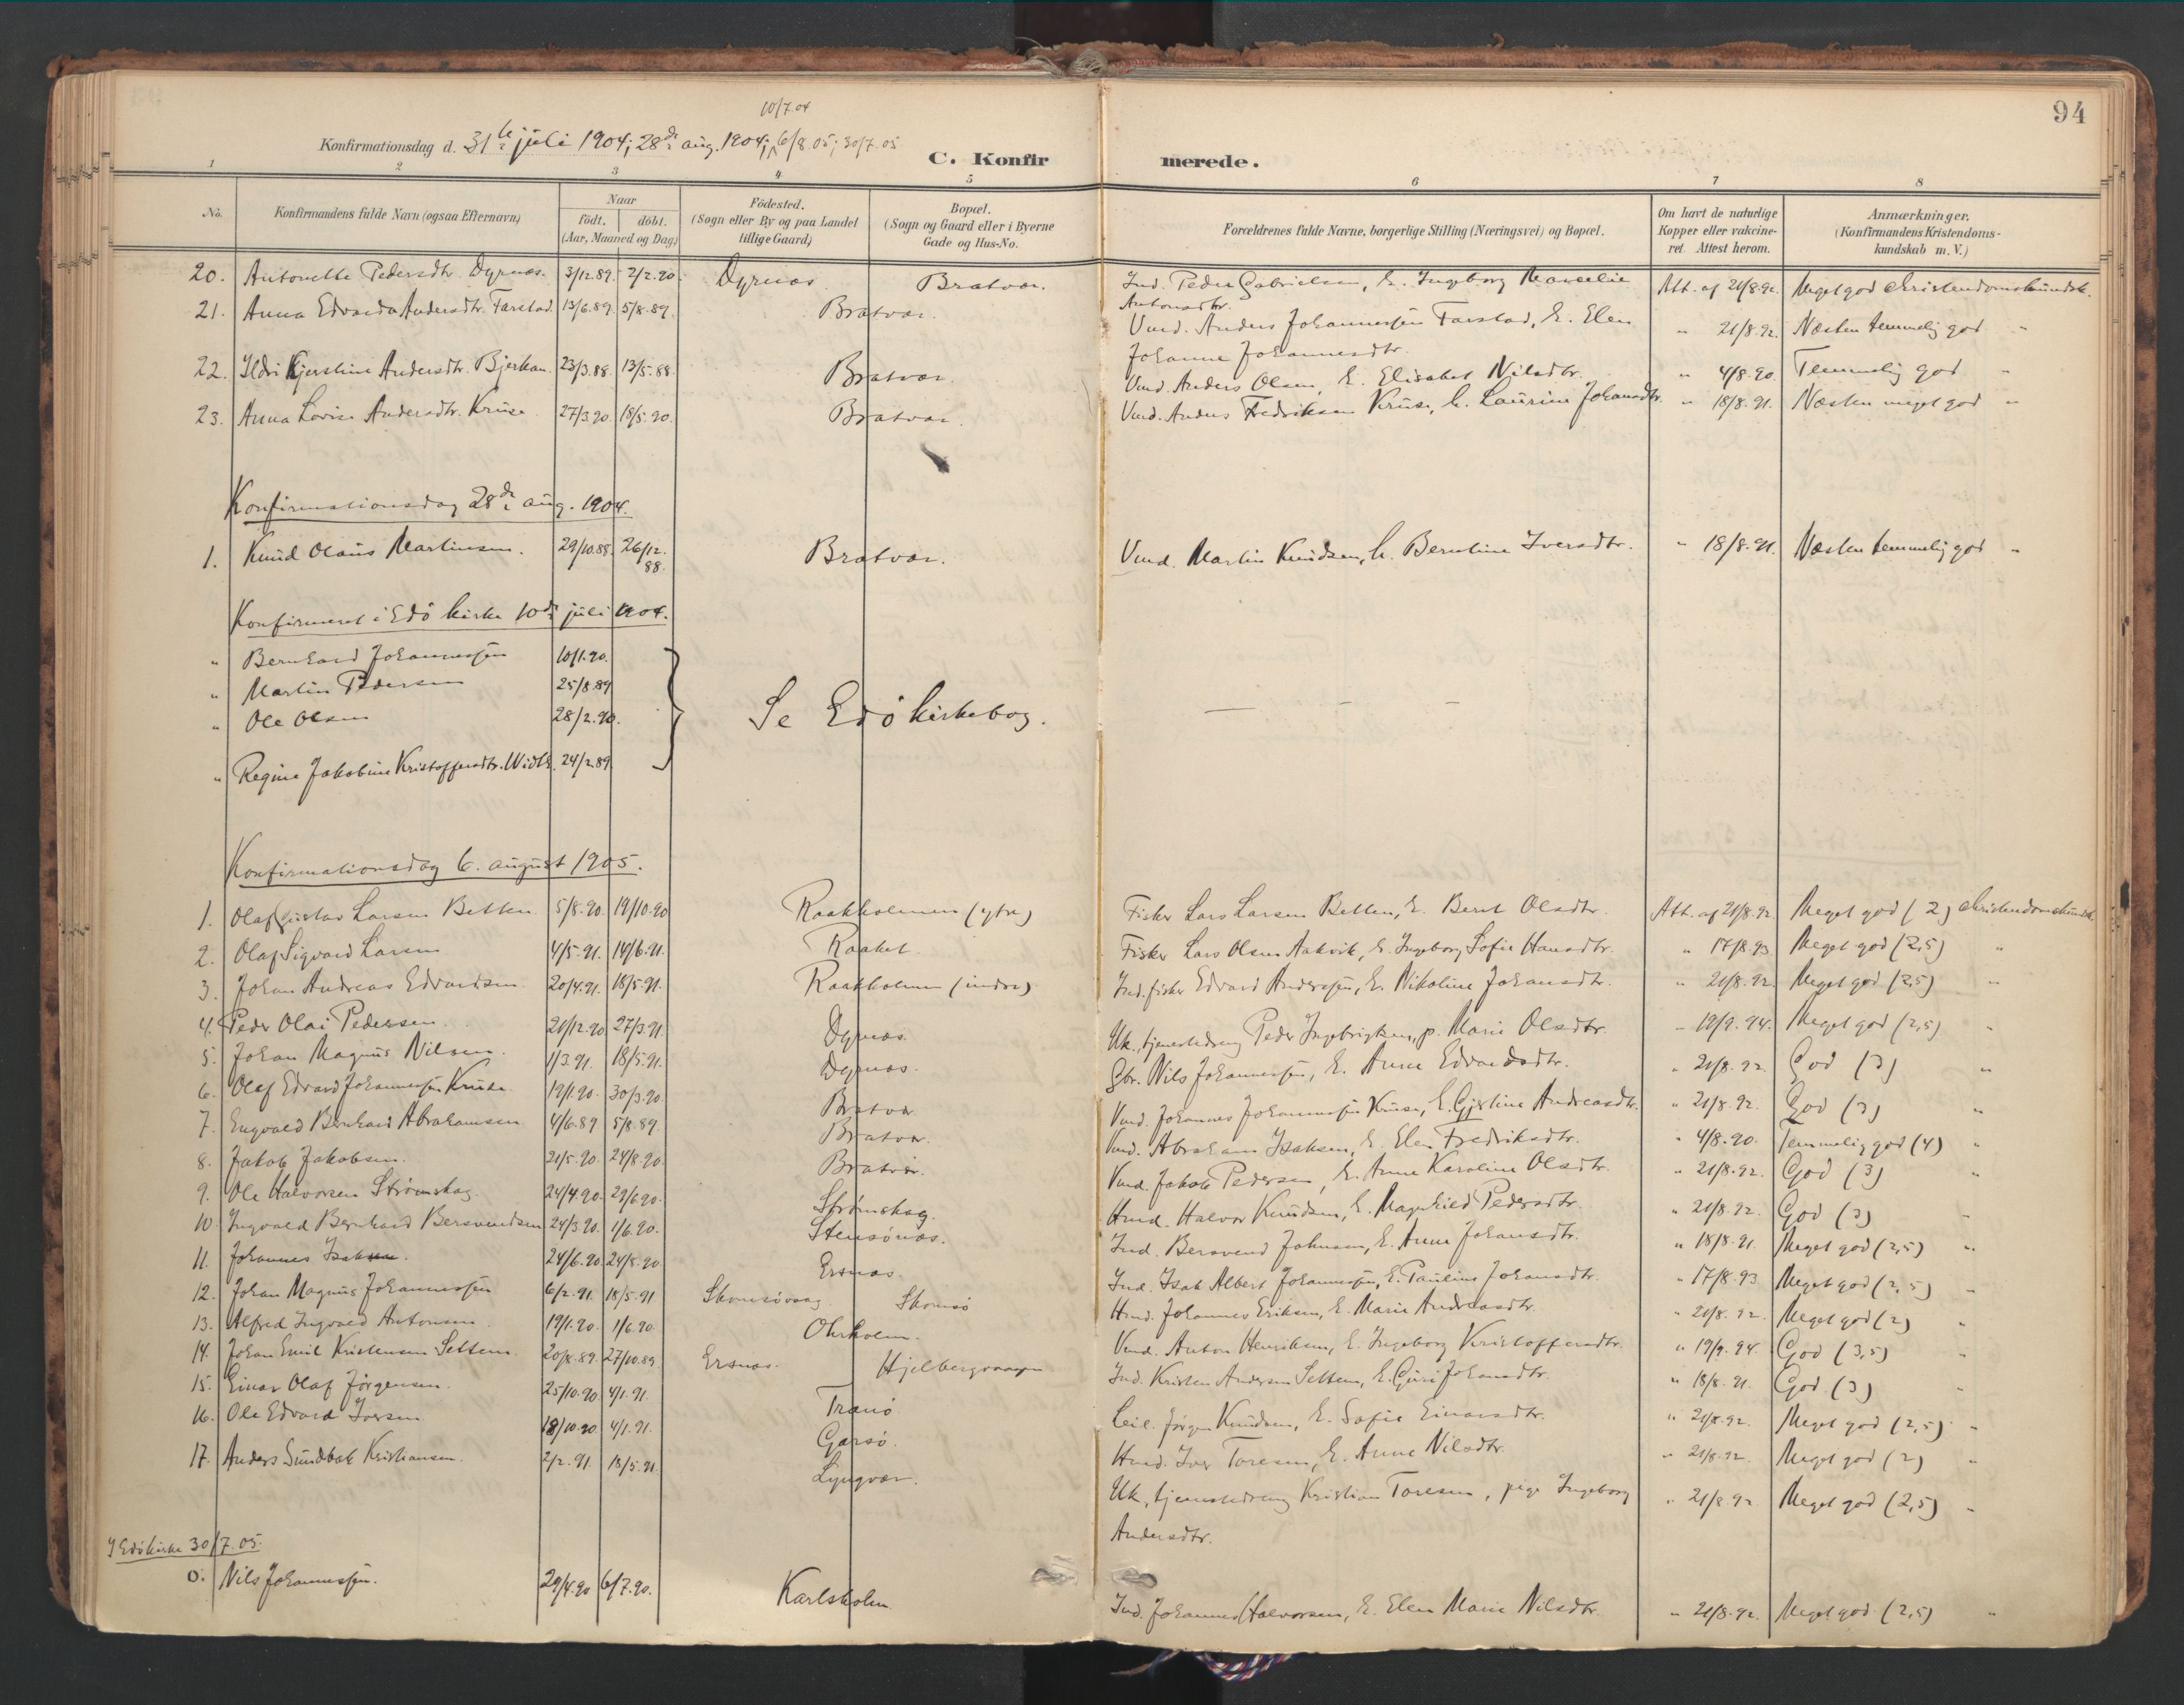 94
10/7.04
Konfirmationsdag d. 31te juli 1904; 28de aug. 1904; 6/8.05; 30/7.05
C. Konfirmerede.
1 2 3 4 5 6 7 8
No. Konfirmandens fulde Navn (ogsaa Efternavn) Naar födt. döbt. (Aar, Maaned og Dag) Födested. (Sogn eller By og paa Landet tillige Gaard) Bopæl. (Sogn og Gaard eller i Byerne Gade og Hus-No. Forældrenes fulde Navne, borgerlige Stilling (Næringsvei) og Bopæl. Om havt de naturlige Kopper eller vakcineret. Attest herom. Anmærkninger. (Konfirmandens Kristendomskundskab m. V.)
20. Antonette Pedersdtr. Dyrnæs. 3/12.89. 2/2.90. Dyrnæs Bratvær. Ind. Peder Gabrielsen, h. Ingeborg Marcelie Antonsdtr. Att. af 21/8.92. Meget god christendomskundsk.
21. Anna Edvarda Andersdtr. Farstad. 13/6.89. 5/8.89. Bratvær. Vmd. Anders Johannessen Farstad, h. Elen Johanne Johannesdtr. " 21/8.92. Næsten temmelig god "
22. Ildri Kjerstine Andersdtr. Bjerkan. 23/3.88. 13/5.88. Bratvær. Vmd. Anders Olsen, h. Elisabet Nilsdtr. " 4/8.90. Temmelig god "
23. Anna Lovise Andersdtr. Kruse. 27/3.90. 18/5.90. Bratvær. Vmd. Anders Fredriksen Kruse, h. Laurine Johansdtr. " 18/8.91. Næsten meget god "
Konfirmationsdag 28de aug. 1904.
1. Knud Olaus Martinsen. 29/10.88. 26/12.88. Bratvær. Vmd. Martin Knudsen, h. Berntine Iversdtr. " 18/8.91. Næsten temmelig god "
Konfirmeret i Edö kirke 10de juli 1904.
" Bernhard Johannessen 10/1.90.
" Martin Pedersen 25/8.89
" Ole Olsen 28/2.90.
Se Edö kirkebog.
" Regine Jakobine Kristoffersdtr. 24/2.89
Konfirmationsdag 6. august 1905.
1. Olaf Gustav Larsen Betten. 5/8.90. 19/10.90 Raakholmen (ytre) Fisker Lars Larsen Betten, h. Bernt Olsdtr. Att. af 21/8.92. Meget god (2) christendomskundsk.
2. Olaf Sigvard Larsen 4/5.91. 14/6.91. Raaket Fisker Lars Olsen Aakvik, h. Ingeborg Sofie Hansdtr. " 17/8.93 Meget god (2,5) "
3. Johan Andreas Edvardsen 20/4.91. 18/5.91. Raakholmen (indre) Ind. fisker Edvard Anderssen, h. Nikoline Johansdtr. " 21/8.92. Meget god (2,5) "
4. Peder Olai Pedersen 21/12.90 27/3.91. Dyrnæs. Uk., tjenestedreng Peder Ingebrigtsen, p. Marie Olsdtr. " 19/9.94. Meget god (2,5) "
5. Johan Magnus Nilsen. 1/3.91. 18/5.91. Dyrnæs. Gbr. Nils Johannessen, h. Anne Edvardsdtr. " 21/8.92. God (3) "
6. Olaf Edvard Johannessen Kruse 19/1.90. 30/3.90. Bratvær Vmd. Johannes Johannessen Kruse, h. Gjertine Andreasdtr. " 21/8.92. God (3) "
7. Engvald Bernhard Abrahamsen 4/6.89 5/8.89. Bratvær. Vmd. Abraham Isaksen, h. Elen Fredriksdtr. " 4/8.90. Temmelig god (4) "
8. Jakob Jakobsen. 21/5.90. 24/8.90. Bratvær. Vmd. Jakob Pedersen, h. Anne Karoline Olsdtr. " 21/8.92. God (3) "
9. Ole Halvorsen Strömskag. 24/4.90. 29/6.90. Strömskag. Hmd. Halvor Knudsen, h. Magnhild Pedersdtr. " 21/8.92. God (3) "
10. Ingvald Bernhard Bersvendsen 24/3.90. 1/6.90. Stensönæs. Ind. Bersvend Johnsen, h. Anne Johansdtr. " 18/8.91. Meget god (2,5) "
11. Johannes Isaksen. 24/6.90 24/8.90 Ersnæs. Ind. Isak Albert Johannessen, h. Pauline Johansdtr. " 17/8.93. Meget god (2,5) "
12. Johan Magnus Johannessen 6/2.91. 18/5.91 Skomsövaag Skomsö Hmd. Johannes Eriksen, h. Marie Andreasdtr. " 21/8.92. Meget god (2) "
13. Alfred Ingvald Antonsen 19/1.90. 1/6.90. Ohrholm. Vmd. Anton Henriksen, h. Ingeborg Kristoffersdtr. " 19/9.94. God (3,5) "
14. Johan Emil Kristensen Settem. 20/8.89. 27/10.89. Ersnæs. Hjelbergvaagen Ind. Kristen Andersen Settem, h. Guri Johansdtr. " 18/8.91. God (3) "
15. Einar Olaf Jörgensen. 25/10.90 4/1.91. Tranö Leil. Jörgen Knudsen, h. Sofie Einarsdtr. " 21/8.92. Meget god (2,5) "
16. Ole Edvard Iversen 18/10.90 4/1.91. Garsö. Hmd. Iver Toresen, h. Anne Nilsdtr. " 21/8.92. Meget god (2) "
17. Anders Sundbak Kristiansen. 2/2.91. 18/5.91. Lyngvær. Uk., tjenestedreng Kristian Toresen, pige Ingeborg Andersdtr. " 21/8.92 Meget god (2,5) "
I Edö kirke 30/7.05.
0. Nils Johannessen. 29/4.90 6/7.90. Karlsholm Ind. Johannes Halvorsen, h. Elen Marie Nilsdtr. " 21/8.92. Meget god (2,5) "